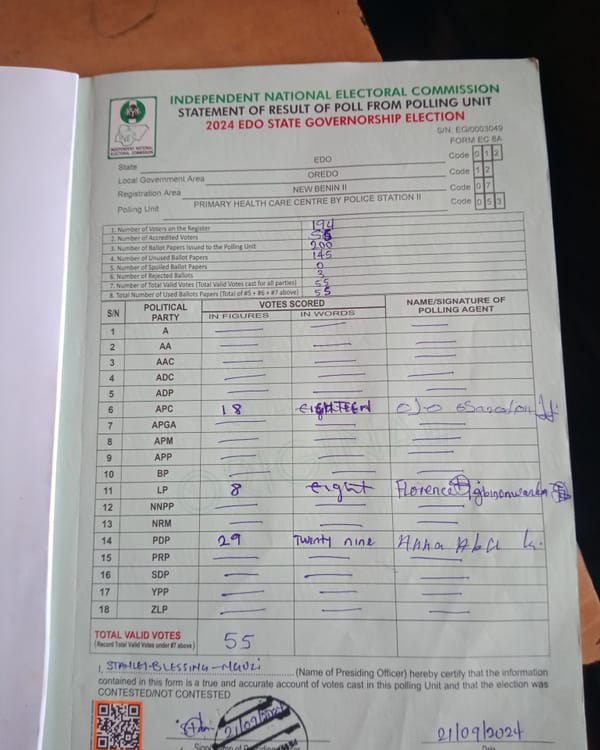 INDEPENDENT NATIONAL ELECTORAL COMMISSION
STATEMENT OF RESULT OF POLL FROM POLLING UNIT
2024 EDO STATE GOVERNORSHIP ELECTION
INDEPENDENT NATIONAL ELECTORAL COMMISSION
S/N: EG/0003049
FORM EC 8A
State EDO Code 0 1 2
Local Government Area OREDO Code 1 2
Registration Area NEW BENIN II Code 0 7
Polling Unit PRIMARY HEALTH CARE CENTRE BY POLICE STATION II Code 0 5 3
1. Number of Voters on the Register 194
2. Number of Accredited Voters
3. Number of Ballot Papers Issued to the Polling Unit 200
4. Number of Unused Ballot Papers 145
5. Number of Spoiled Ballot Papers 0
6. Number of Rejected Ballots 3
7. Number of Total Valid Votes (Total Valid Votes cast for all parties) 55
8. Total Number of Used Ballots Papers (Total of #5 + #6 + #7 above) 55
S/N POLITICAL PARTY VOTES SCORED NAME/SIGNATURE OF POLLING AGENT
IN FIGURES IN WORDS
1 A
2 AA
3 AAC
4 ADC
5 ADP
6 APC 18 EIGHTEEN
7 APGA
8 APM
9 APP
10 BP
11 LP 8 eight Florence
12 NNPP
13 NRM
14 PDP 29 TWENTY nine Anna
15 PRP
16 SDP
17 YPP
18 ZLP
TOTAL VALID VOTES 55
(Record Total Valid Votes under #7 above)
I, STANLEY-BLESSING - NGOZI (Name of Presiding Officer) hereby certify that the information
contained in this form is a true and accurate account of votes cast in this polling Unit and that the election was
CONTESTED/NOT CONTESTED
21/09/2024 21/09/2024
Date